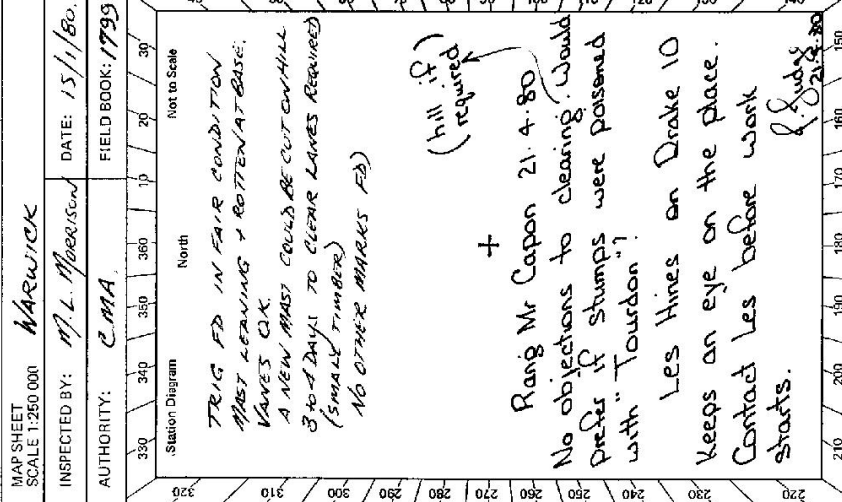 MAP SHEET
SCALE 1:250 000 WARWICK
INSPECTED BY: M.L. MORRISON DATE: 15/1/80.
AUTHORITY: C.M.A. FIELD BOOK: 1799
330 340 350 360 10 20 30
Station Diagram North Not to Scale
TRIG FD IN FAIR CONDITION
MAST LEANING + ROTTEN AT BASE.
VANES O.K.
A NEW MAST COULD BE CUT ON HILL
3 to 4 DAYS TO CLEAR LANES REQUIRED
(SMALL TIMBER)
NO OTHER MARKS FD)
(hill if
required)
+
Rang Mr Capon 21.4.80
No objections to clearing. Would
prefer if stumps were poisoned
with "Tourdon"?
Les Hines on Drake 10
keeps an eye on the place.
Contact Les before work
starts.
P. Judge
21.4.80
320 310 300 290 280 270 260 250 240 230 220
210 200 190 180 170 160 150